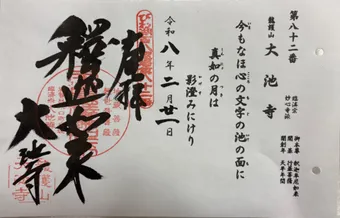 第八十二番
龍護山
大池寺
臨済宗
妙心寺派
御本尊 釈迦牟尼如来
開基 行基菩薩
開創年 天平年間
今もなほ心の文字の池の面に
真如の月は
影澄みにけり
令和八年二月廿一日
奉拝
釋迦如来
大池寺